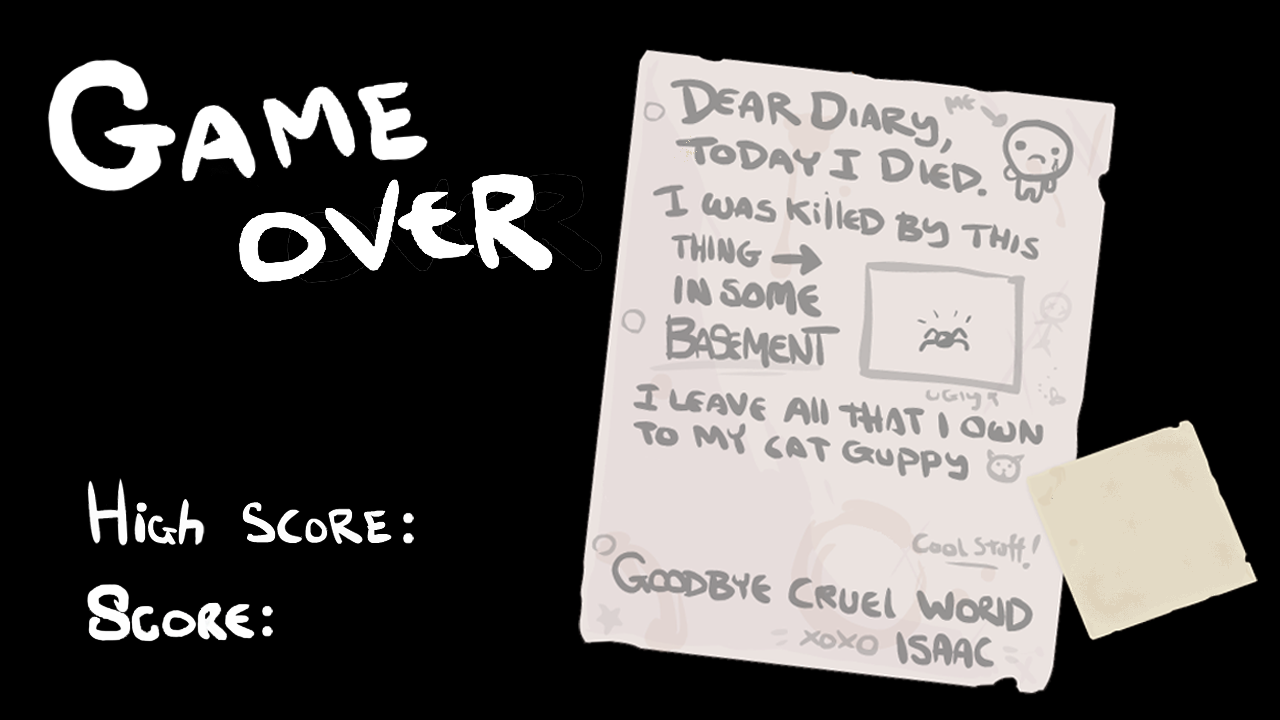 GAME
OVER
HIGH SCORE:
SCORE:
DEAR DIARY,
ME
TODAY I DIED.
I WAS KillED BY THIS
THING →
IN SOME
BASEMENT
UGLY
I LEAVE All THAT I OWN
TO MY CAT GUPPY
Cool Stuff!
GOODBYE CRUEl WORlD
XOXO ISAAC